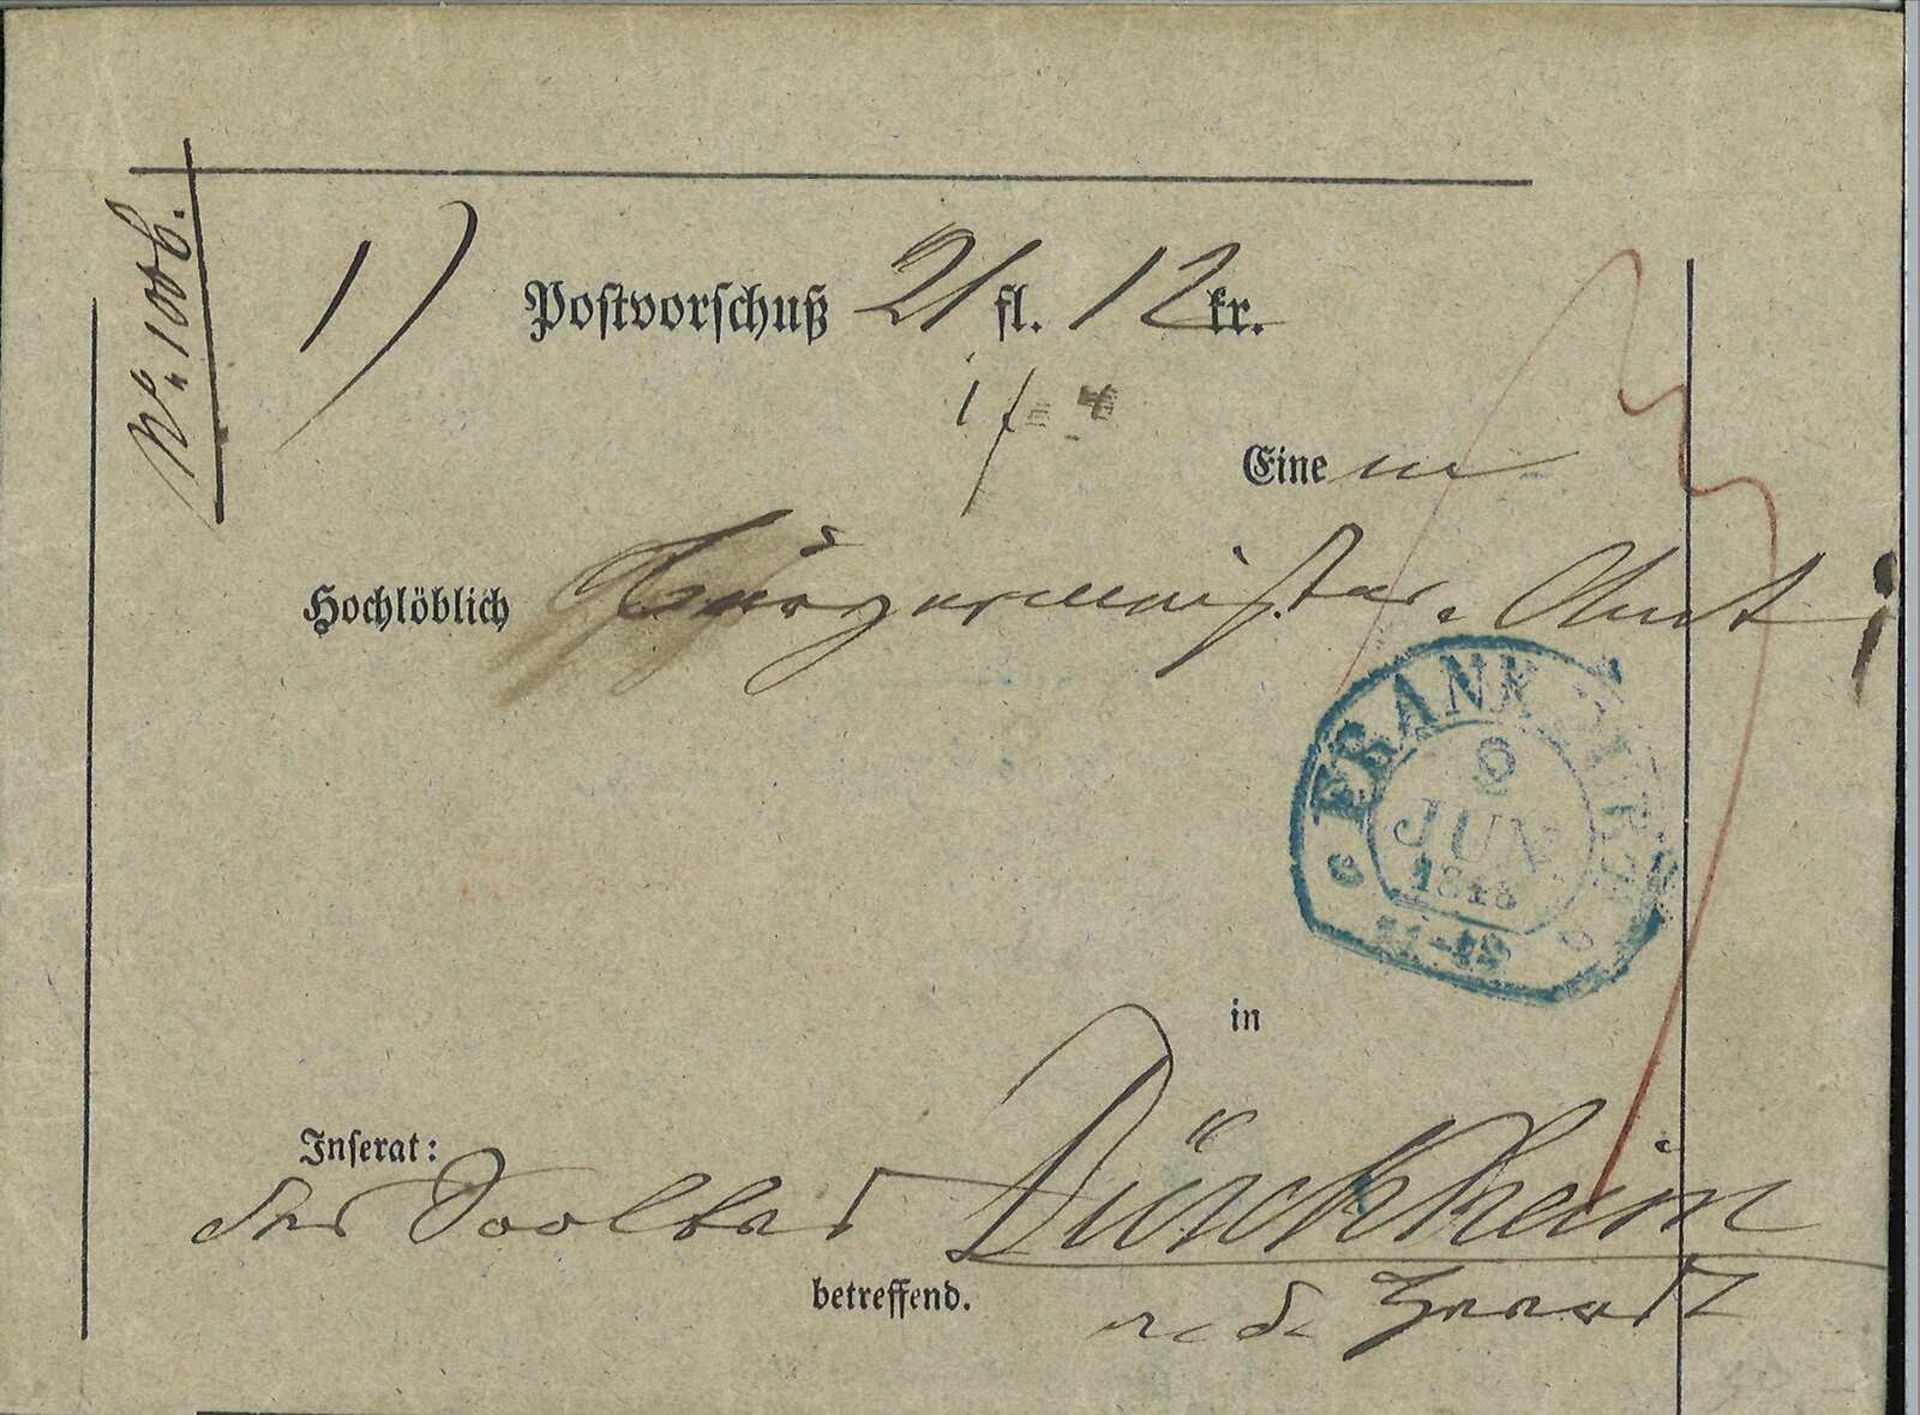 No. 1006.
1) Postvorschuß 21 fl. 12 kr.
Einem
Hochlöblich Bürgermeister-Amt
FRANKFURT
JUN.
184
11-12
in
Inserat:
Das Soolbad Dürckheim
betreffend. a. d. Haardt